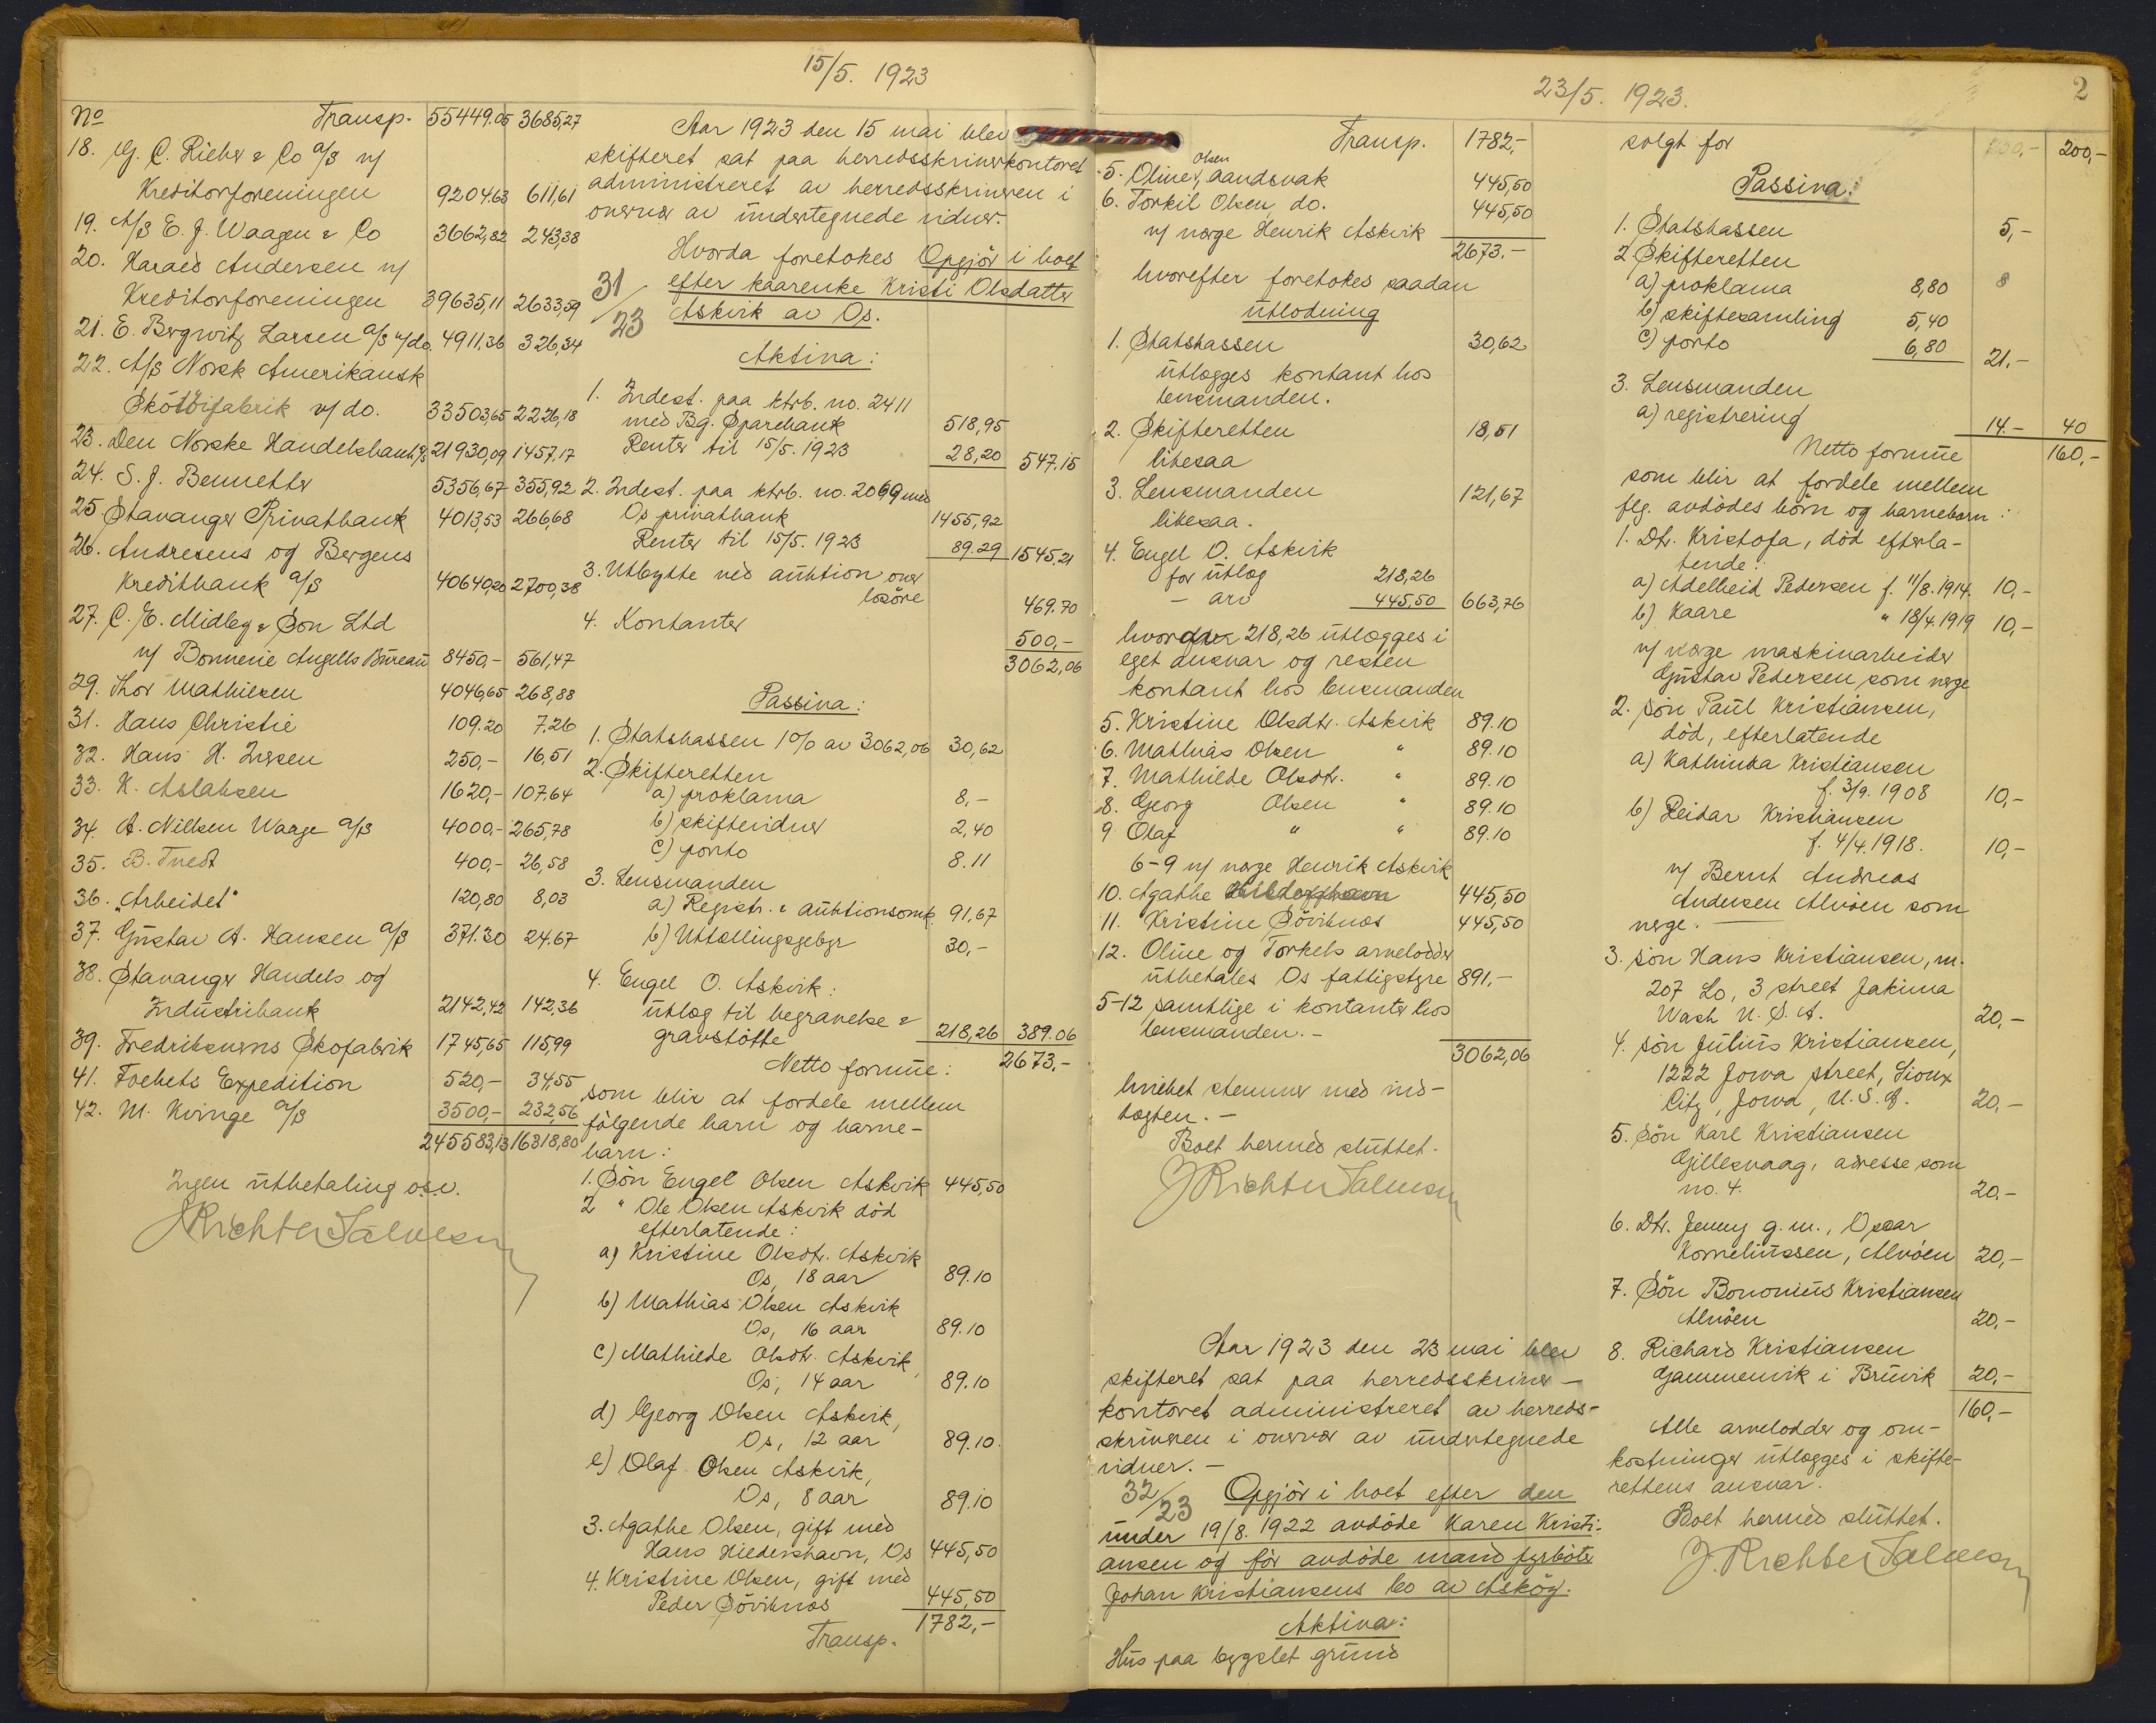 15/5. 1923
No Transp. 55449.05 3685,27
18. G. C. Rieber & Co a/s v/
Kreditorforeningen 9204.63 611,61
19. A/S E. J. Waagen & Co 3662,82 243,38
20. Harald Andersen v/
Kreditorforeningen 39635,11 2633,59
21. E. Bergwitz Larsen a/s v/do. 4911,36 326,34
22. A/S Norsk Amerikansk
Skötöifabrik v/ do. 33503,65 2226,18
23. Den Norske Handelsbank a/s 21930,09 1457.17
24. S. J. Bennetter 5356,67 355,92
25. Stavanger Privatbank 4013,53 266,68
26. Andresens og Bergens
Kreditbank a/s 40640,20 2700,38
27. C. E. Midley & Son Ltd
v/ Bonnevie Angells Bureau 8450,- 561,47
29. Thor Mathiesen 4046,65 268,88
31. Hans Christie 109.20 7.26
32. Hans H. Iversen 250,- 16,51
33. K. Aslaksen 1620,- 107.64
34. A. Nilsen Waage a/s 4000,- 265,78
35. B. Tvedt 400,- 26,58
36. "Arbeidet" 120,80 8,03
37. Gustav A. Hansen a/s 371.30 24.67
38. Stavanger Handels og
Industribank 2142,42 142,36
39. Fredriksværns Skofabrik 1745,65 115,99
41. Fochets Expedition 520,- 34,55
42. M. Kvinge a/s 3500,- 232,56
245583,13 16318,80
Ingen utbetaling o.s.v.
J Richter Salvesen
Aar 1923 den 15 mai blev
skifteret sat paa herredsskriverkontoret
administreret av herredsskriveren i
overvær av undertegnede vidner.
Hvorda foretokes Opgjör i boet
31/23 efter kaarenke Kristi Olsdatter
Askvik av Os.
Aktiva:
1. Indest. paa ktrb. no. 2411
med Bg. Sparebank 518,95
Renter til 15/5. 1923 28,20 547.15
2. Indest. paa ktrb. no. 2069 med
Os privatbank 1455,92
Renter til 15/5. 1923 89.29 1545.21
3. Utbytte ved auktion over
lösöre 469.70
4. Kontanter 500,-
3062,06
Passiva:
1. Statskassen 1% av 3062,06 30,62
2. Skifteretten
a) proklama 8,-
b) skiftevidner 2,40
c) porto 8.11
3. Lensmanden
a) Registr. & auktionsomk. 91,67
b) Uttællingsgebyr 30,-
4. Engel O. Askvik:
utlæg til begravelse &
gravstötte 218,26 389.06
Netto formue: 2673,-
som blir at fordele mellem
fölgende barn og barne-
barn:
1. Sön Engel Olsen Askvik 445,50
2 " Ole Olsen Askvik död
efterlatende:
a) Kristine Olsdtr. Askvik
Os, 18 aar 89.10
b) Mathias Olsen Askvik
Os, 16 aar 89.10
c) Mathilde Olsdtr. Askvik,
Os, 14 aar 89.10
d) Georg Olsen Askvik,
Os, 12 aar 89.10.
e) Olaf Olsen Askvik,
Os, 8 aar 89.10
3. Agathe Olsen, gift med
Hans Hildershavn, Os 445,50
4. Kristine Olsen, gift med
Peder Söviknæs 445,50
Transp. 1782,-
23/5. 1923.
2
Transp. 1782,-
Olsen
5. Oline, aandsvak 445,50
6. Torkil Olsen, do. 445,50
v/ verge Henrik Askvik
2673.-
hvorefter foretokes saadan
utlodning
1. Statskassen 30,62
utlægges kontant hos
lensmanden.
2. Skifteretten 18,51
likesaa
3. Lensmanden 121,67
likesaa.
4. Engel O. Askvik
for utlæg 218,26
- arv 445,50 663,76
hvorav 218,26 utlægges i
eget ansvar og resten
kontant hos lensmanden
5. Kristine Olsdtr. Askvik 89.10
6. Mathias Olsen " 89.10
7. Mathilde Olsdtr. " 89.10
8. Georg Olsen " 89.10
9. Olaf " " 89.10
6-9 v/ verge Henrik Askvik
10. Agathe Hildershavn 445,50
11. Kristine Söviknæs 445,50
12. Oline og Torkels arvelodder
utbetales Os fattigstyre 891.-
5-12 samtlige i kontanter hos
lensmanden.-
3062,06
hvilket stemmer med ind-
tægten.-
Boet hermed sluttet.
J Richter Salvesen
Aar 1923 den 23 mai blev
skifteret sat paa herredsskriver-
kontoret administreret av herreds-
skriveren i overvær av undertegnede
vidner.-
32/23 Opgjör i boet efter den
under 19/8. 1922 avdöde Karen Kristi-
ansen og för avdöde mand fyrböter
Johan Kristiansens bo av Askög.
Aktiva:
Hus paa bygslet grund
solgt for 200,- 200,-
Passiva:
1. Statskassen 5,-
2 Skifteretten
a) proklama 8,80 8
b) skiftesamling 5,40
c) porto 6,80 21.-
3. Lensmanden
a) registrering 14.- 40
Netto formue 160,-
som blir at fordele mellem
flg. avdödes börn og barnebarn:
1. Dtr. Kristofa, död efterla-
tende:
a) Adelheid Pedersen f. 11/8. 1914. 10,-
b) Kaare " 18/4. 1919 10,-
v/ verge maskinarbeider
Gustav Pedersen som verge
2. sön Paul Kristiansen,
död, efterlatende
a) Kathinka Kristiansen
f. 3/9. 1908 10,-
b) Reidar Kristiansen
f. 4/4. 1918. 10,-
v/ Bernt Andreas
Andersen Alvöen som
verge.
3. sön Hans Kristiansen, m.
207 Lo, 3 street Jakima
Wash U. S. A. 20,-
4. sön Julius Kristiansen,
1222 Jowa street, Sioux
City, Jowa, U.S.A. 20,-
5. Sön Karl Kristiansen
Gillesvaag, adresse som
no. 4. 20.-
6. Dtr. Jenny g.m., Oscar
Korneliussen, Alvöen 20,-
7. Sön Bononius Kristiansen
Alvöen 20.-
8. Richard Kristiansen
Gammervik i Bruvik 20,-
160,-
Alle arvelodder og om-
kostninger utlægges i skifte-
rettens ansvar.
Boet hermed sluttet.
J. Richter Salvesen